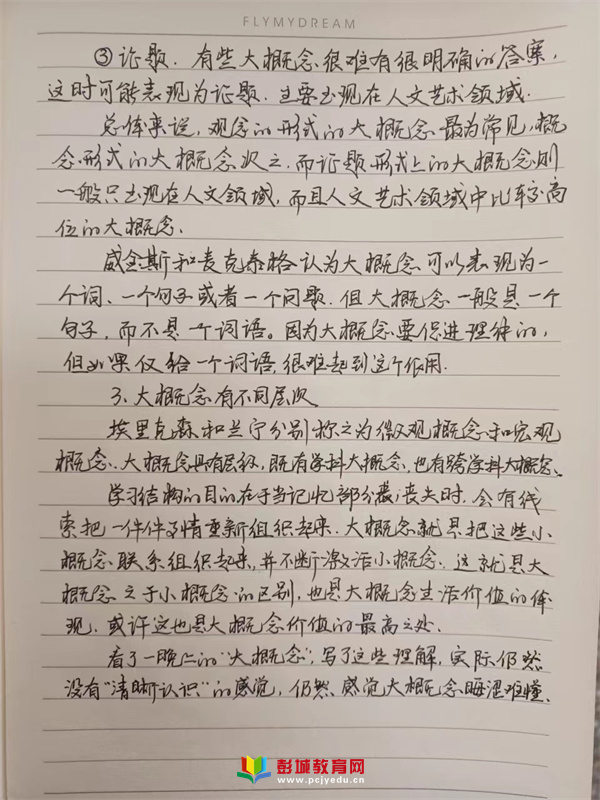 FLYMYDREAM
③论题. 有些大概念很难有很明确的答案,
这时可能表现为论题. 主要出现在人文艺术领域.
总体来说, 观念的形式的大概念最为常见, 概
念形式的大概念次之. 而论题形式上的大概念则
一般只出现在人文领域, 而且人文艺术领域中比较高
位的大概念.
威金斯和麦克泰格认为大概念可以表现为一
个词、一个句子或者一个问题. 但大概念一般是一个
句子, 而不是一个词语。因为大概念要促进理解的,
但如果仅给一个词语, 很难起到这个作用.
3. 大概念有不同层次
埃里克森和兰宁分别称之为微观概念和宏观
概念. 大概念具有层级, 既有学科大概念, 也有跨学科大概念.
学习结构的目的在于当记忆部分丧失时, 会有线
索把一件件事情重新组织起来. 大概念就是把这些小
概念联系组织起来, 并不断激活小概念. 这就是大
概念之于小概念的区别, 也是大概念生活价值的体
现. 或许这也是大概念价值的最高之处.
看了一晚上的“大概念”, 写了这些理解, 实际仍然
没有“清晰认识”的感觉, 仍然感觉大概念晦涩难懂.
彭城教育网
www.pcjyedu.cn